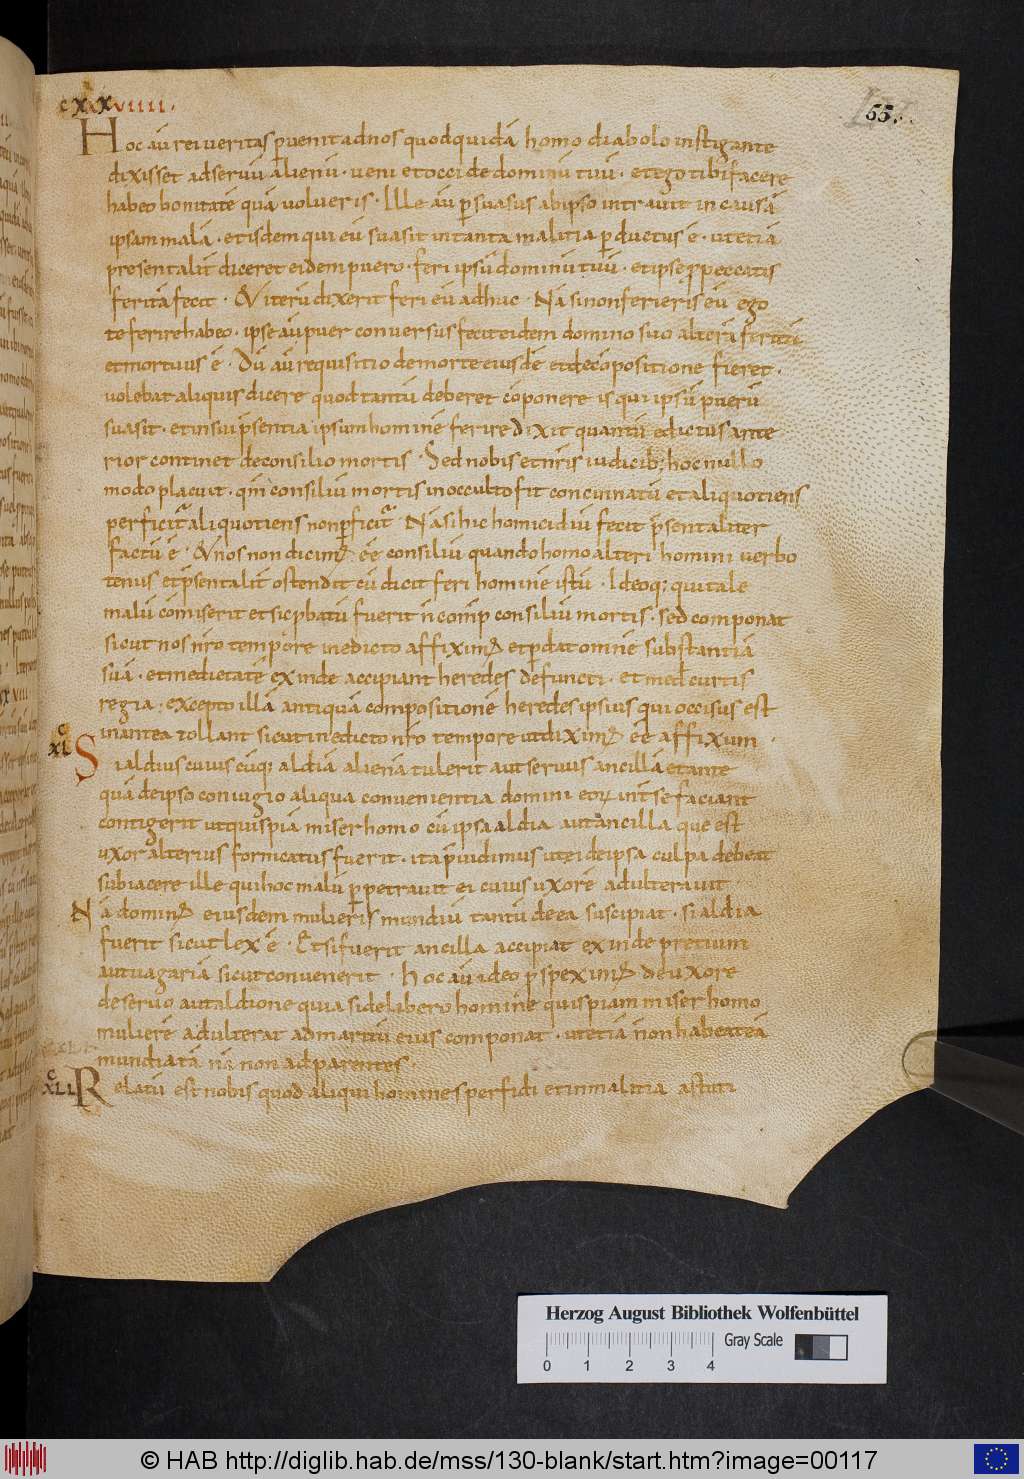 cxxxviiii.
55.
Hoc aū rei veritas p̱venit ad nos quod quidā homo diabolo instigante
dixisset ad servū alienū · veni et occide dominū tuū · et ego tibi facere
habeo bonitatē quā volueris · Ille aū p̱suasus ab ipso intravit in causā
ipsam malā · et isdem qui eū suasit in tanta malitia p̱ductus ē · ut etiā
presentalit̄ diceret eidem puero · feri ipsū dominū tuū · et ipse p̱ peccatis
feritā fecit · Et iterū dixerit feri eū adhuc · Nā si non ferieris eū ego
te ferire habeo · ipse aū puer conversus fecit eidem domino suo alterā feritā
et mortuus ē · Dū aū requisitio de morte eiusdē et de cōpositione fieret ·
volebat aliquis dicere quod tantū deberet cōponere is qui ipsū puerū
suasit · et in sui p̄sentia ipsum hominē ferire dixit quantū edictus ante
rior continet de consilio mortis · Sed nobis et nr̄is iudicib; hoc nullo
modo placuit · qm̄ consiliū mortis in occulto fit concinnatū et aliquotiens
perficit̄ aliquotiens non p̱ficit̄ · Nā si hic homicidiū fecit p̄sentaliter
factū ē · Et nos non dicim᾽ ēē consiliū quando homo alteri homini verbo
tenus et p̄sentalit̄ ostendit cū dicit feri hominē istū · Ideoq; qui tale
malū cōmiserit et sic p̱batū fuerit n̄ comp̄ consiliū mortis · sed componat
sicut nos nr̄o tempore in edicto affixim᾽ et p̱dat omnē substantiā
suā · et medietatē exinde accipiant heredes defuncti · et med̄ curtis
regia; excepto illā antiquā compositionē heredes ipsius qui occisus est
in antea tollant sicut in edicto nr̄o tempore ut dixim᾽ ēē affixum ·
cxl
Si aldius cuiuscūq; aldiā alienā tulerit aut servus ancillā et ante
quā de ipso coniugio aliqua convenientia domini eoꝝ int̄ se faciant
contigerit ut quispiā miser homo cū ipsa aldia aut ancilla que est
uxor alterius fornicatus fuerit · ita p̄vidimus ut ei de ipsa culpa debeat
subiacere ille qui hoc malū p̱petravit ei cuius uxorē adulteravit
Nā domin᾽ eiusdem mulieris mundiū tantū de ea suscipiat · si aldia
fuerit sicut lex ē · Et si fuerit ancilla accipiat exinde pretium
aut vagariā sicut convenerit · hoc aū ideo p̱speximꝰ de uxore
de servo aut aldione quia si de libero homine quispiam miser homo
mulierē adulterat ad maritū eius componat · ut etiā n̄ non habeat eā
mundiatā nā non ad parentes ·
cxli
Relatū est nobis quod aliqui homines perfidi et in malitia astuti
Herzog August Bibliothek Wolfenbüttel
Gray Scale
0 1 2 3 4
© HAB http://diglib.hab.de/mss/130-blank/start.htm?image=00117